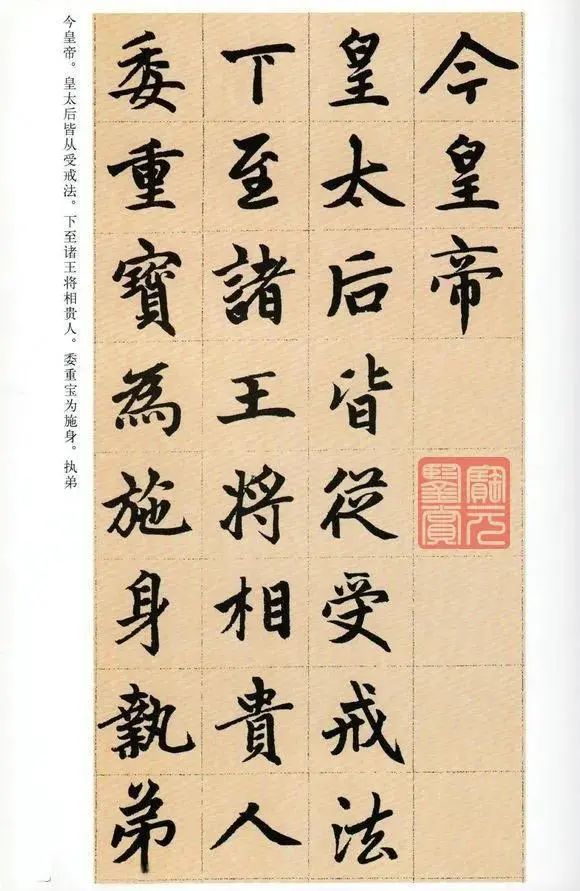 今皇帝
皇太后皆從受戒法
下至諸王將相貴人
委重寶為施身執弟
寶元
鑒賞
今皇帝。皇太后皆从受戒法。下至诸王将相贵人。委重宝为施身。执弟